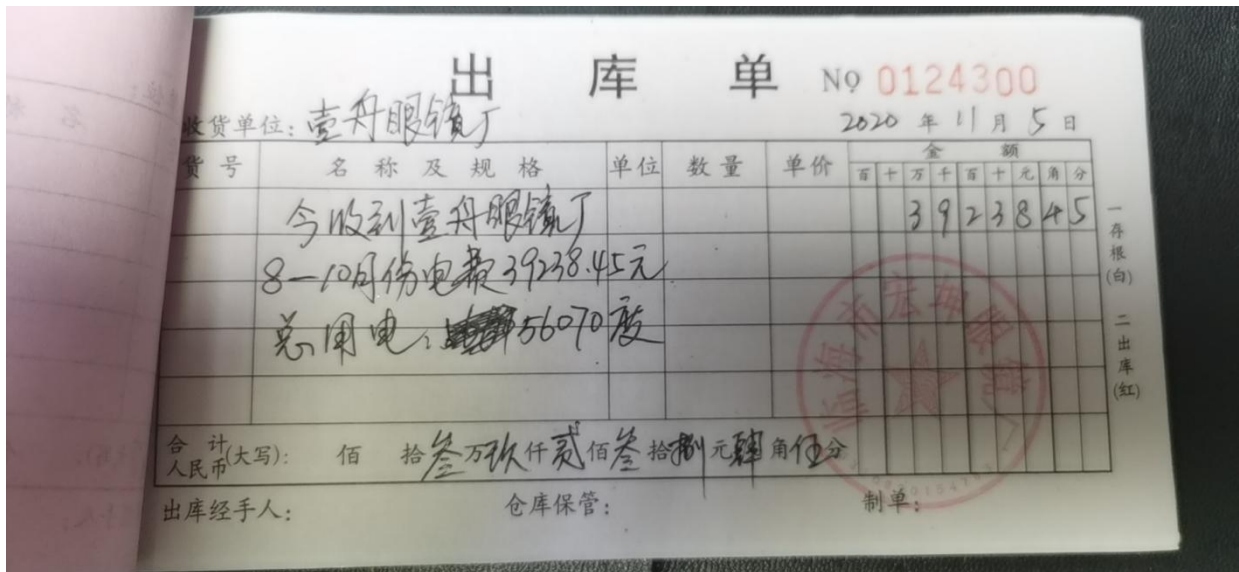 出库单 № 0124300
收货单位：壹舟眼镜厂 2020年11月5日
货号 名称及规格 单位 数量 单价 金额
百十万千百十元角分
今收到壹舟眼镜厂 3923845
8—10月份电费39238.45元
总用电：56070度
合计人民币(大写)： 佰 拾叁万玖仟贰佰叁拾捌元肆角伍分
出库经手人： 仓库保管： 制单：
一存根(白) 二出库(红)
临海市宏坤眼镜厂